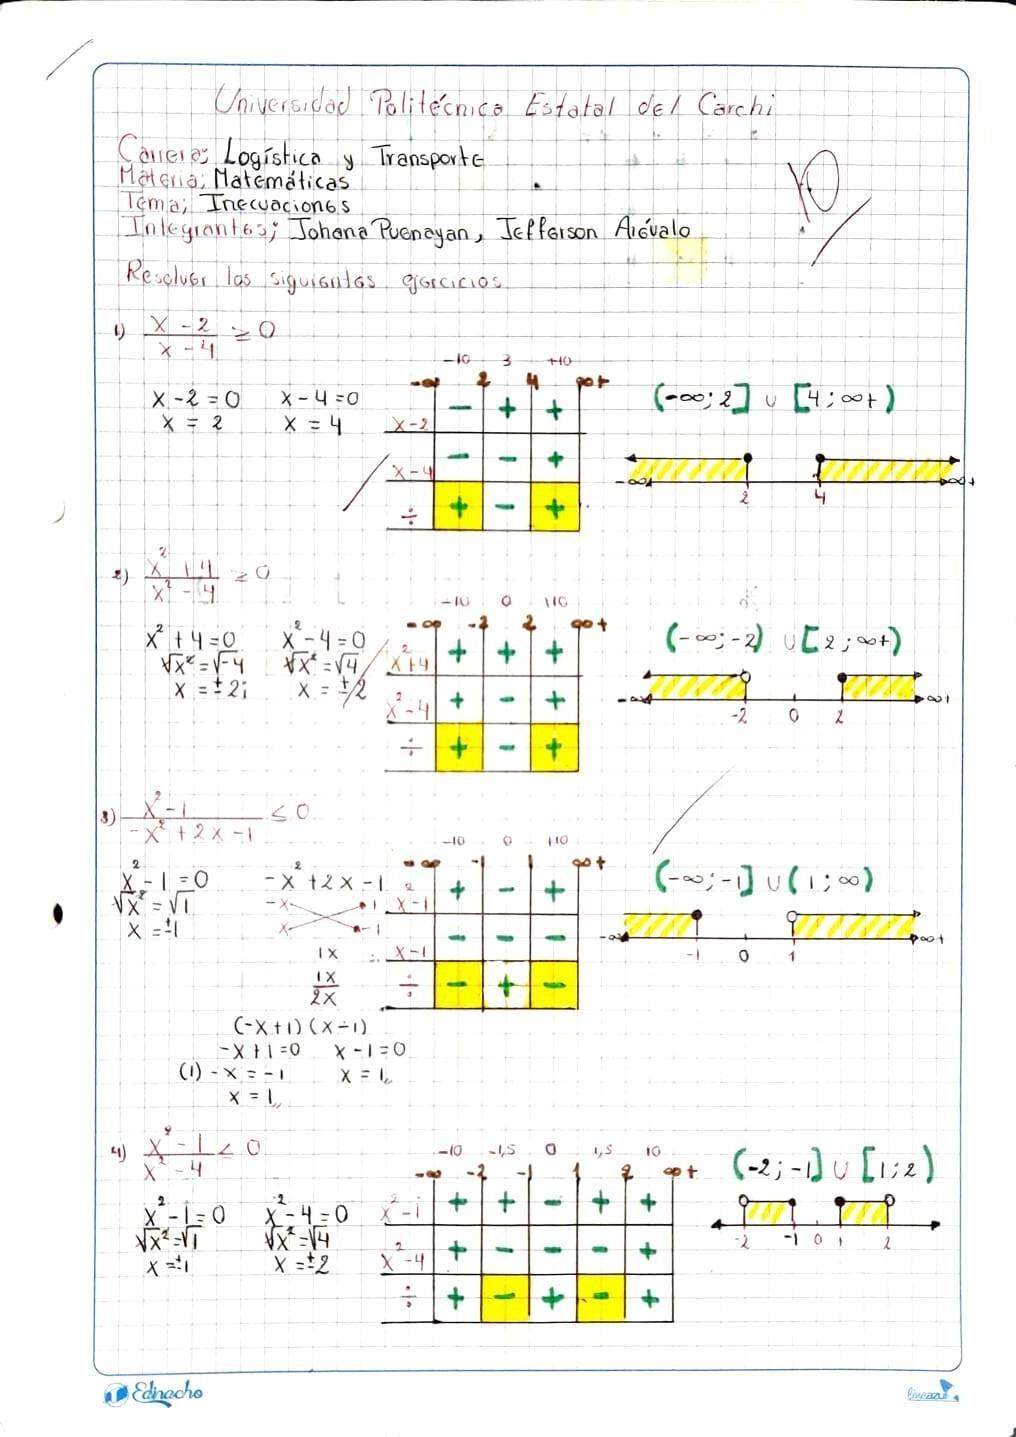 Universidad Politécnica Estatal del Carchi
Carrera; Logística y Transporte
Materia; Matemáticas
Tema; Inecuaciones
10
Integrantes; Johana Puenayan, Jefferson Arévalo
Resolver los siguientes ejercicios
1) x - 2 / x - 4 ≥ 0
x - 2 = 0 x - 4 = 0
x = 2 x = 4
-10 3 +10
-∞ 2 4 ∞+
x-2 - + +
x-4 - - +
÷ + - +
(-∞; 2] ∪ [4; ∞+)
-∞ 2 4 ∞+
2) x² + 4 / x² - 4 ≥ 0
x² + 4 = 0 x² - 4 = 0
√x² = √-4 √x² = √4
x = ± 2i x = ± 2
-10 0 +10
-∞ -2 2 ∞+
x²+4 + + +
x²-4 + - +
÷ + - +
(-∞; -2) ∪ [2; ∞+)
-∞ -2 0 2 ∞+
3) x² - 1 / -x² + 2x - 1 ≤ 0
x² - 1 = 0 -x² + 2x - 1
√x² = √1 -x 1
x = ±1 x -1
1x
1x
2x
(-x+1)(x-1)
-x+1=0 x-1=0
(1) -x = -1 x = 1,,
x = 1,,
-10 0 +10
-∞ -1 1 ∞+
x²-1 + - +
∴ x-1 - - -
÷ - + -
(-∞; -1] ∪ (1; ∞)
-∞ -1 0 1 ∞+
4) x² - 1 / x² - 4 ≤ 0
x² - 1 = 0 x² - 4 = 0
√x² = √1 √x² = √4
x = ±1 x = ±2
-10 -1,5 0 1,5 10
-∞ -2 -1 1 2 ∞+
x²-1 + + - + +
x²-4 + - - - +
÷ + - + - +
(-2; -1] ∪ [1; 2)
-2 -1 0 1 2
Edinacho
lineazul